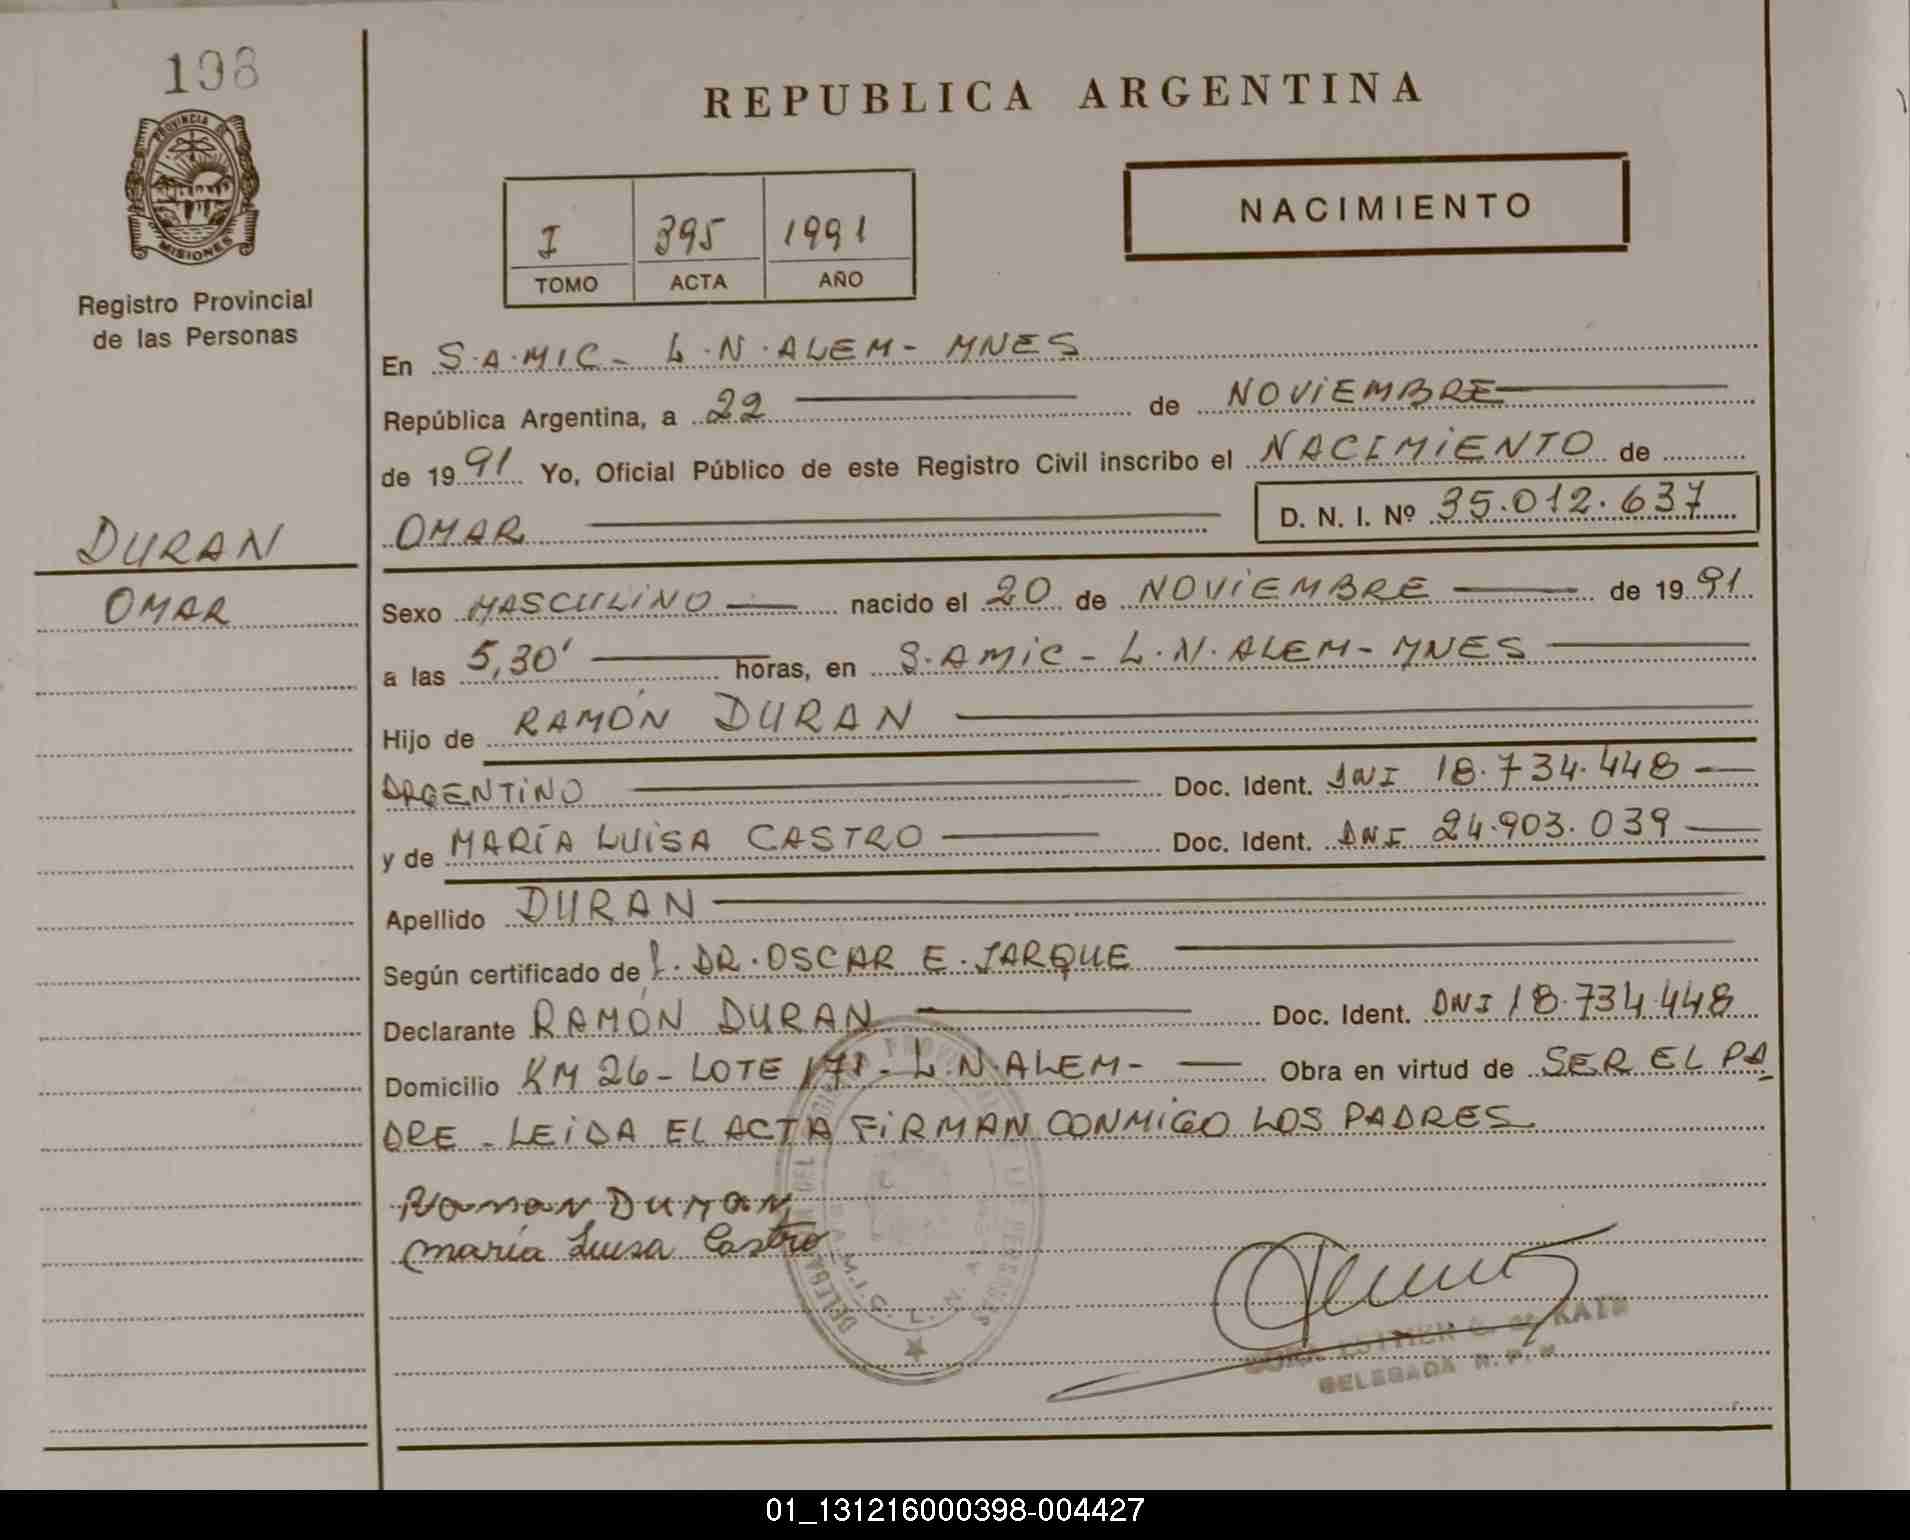 198
PROVINCIA DE
MISIONES
Registro Provincial
de las Personas
DURAN
OMAR
REPUBLICA ARGENTINA
I 395 1991
TOMO ACTA AÑO
NACIMIENTO
En S.A.MIC - L.N.ALEM - MNES
República Argentina, a 22 de NOVIEMBRE
de 1991 Yo, Oficial Público de este Registro Civil inscribo el NACIMIENTO de
OMAR D. N. I. Nº 35.012.637
Sexo MASCULINO nacido el 20 de NOVIEMBRE de 1991
a las 5,30' horas, en S.AMIC - L.N.ALEM - MNES
Hijo de RAMÓN DURAN
ARGENTINO Doc. Ident. DNI 18.734.448
y de MARÍA LUISA CASTRO Doc. Ident. DNI 24.903.039
Apellido DURAN
Según certificado de DR. OSCAR E. JARQUE
Declarante RAMÓN DURAN Doc. Ident. DNI 18.734.448
Domicilio KM 26 - LOTE 171 - L.N.ALEM - Obra en virtud de SER EL PA
DRE - LEIDA EL ACTA FIRMAN CONMIGO LOS PADRES
Ramon Duran
maría Luisa Castro
S.A.M.I.C. L. N. ALEM
DELEGADA R. P.
01_131216000398-004427